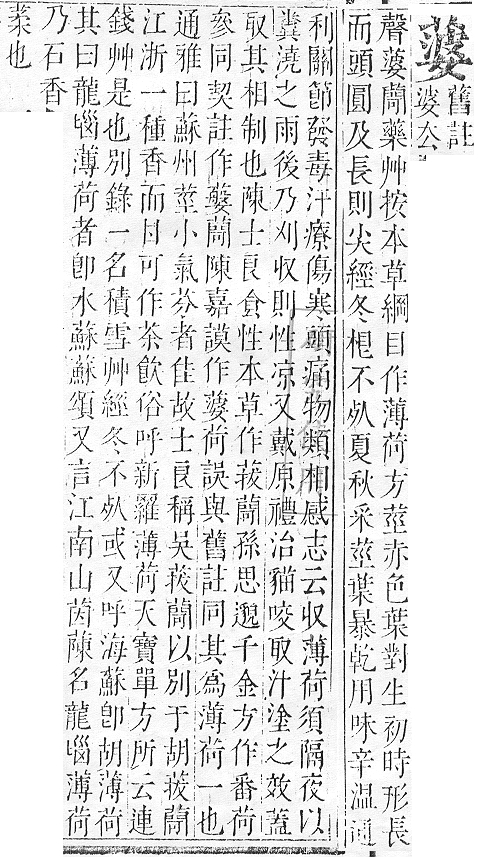 蔢
舊註
婆去
聲蔢蔄藥艸按本草綱目作薄荷方莖赤色葉對生初時形長
而頭圓及長則尖經冬根不㱙夏秋采莖葉暴乾用味辛温通
利關節發毒汗療傷寒頭痛物類相感志云收薄荷須隔夜以
糞澆之雨後乃刈收則性凉又戴原禮治貓咬取汁塗之效蓋
取其相制也陳士良食性本草作菝蔄孫思邈千金方作番荷
參同契註作蔢蔄陳嘉謨作蔢荷誤與舊註同其爲薄荷一也
通雅曰蘇州莖小氣芬者佳故士良稱吳菝蔄以別于胡菝蔄
江浙一種香而甘可作茶飲俗呼新羅薄荷天寶單方所云連
錢艸是也別錄一名積雪艸經冬不㱙或又呼海蘇卽胡薄荷
其曰龍㐫薄荷者卽水蘇蘇頌又言江南山茵蔯名龍㐫薄荷
乃石香
葇也